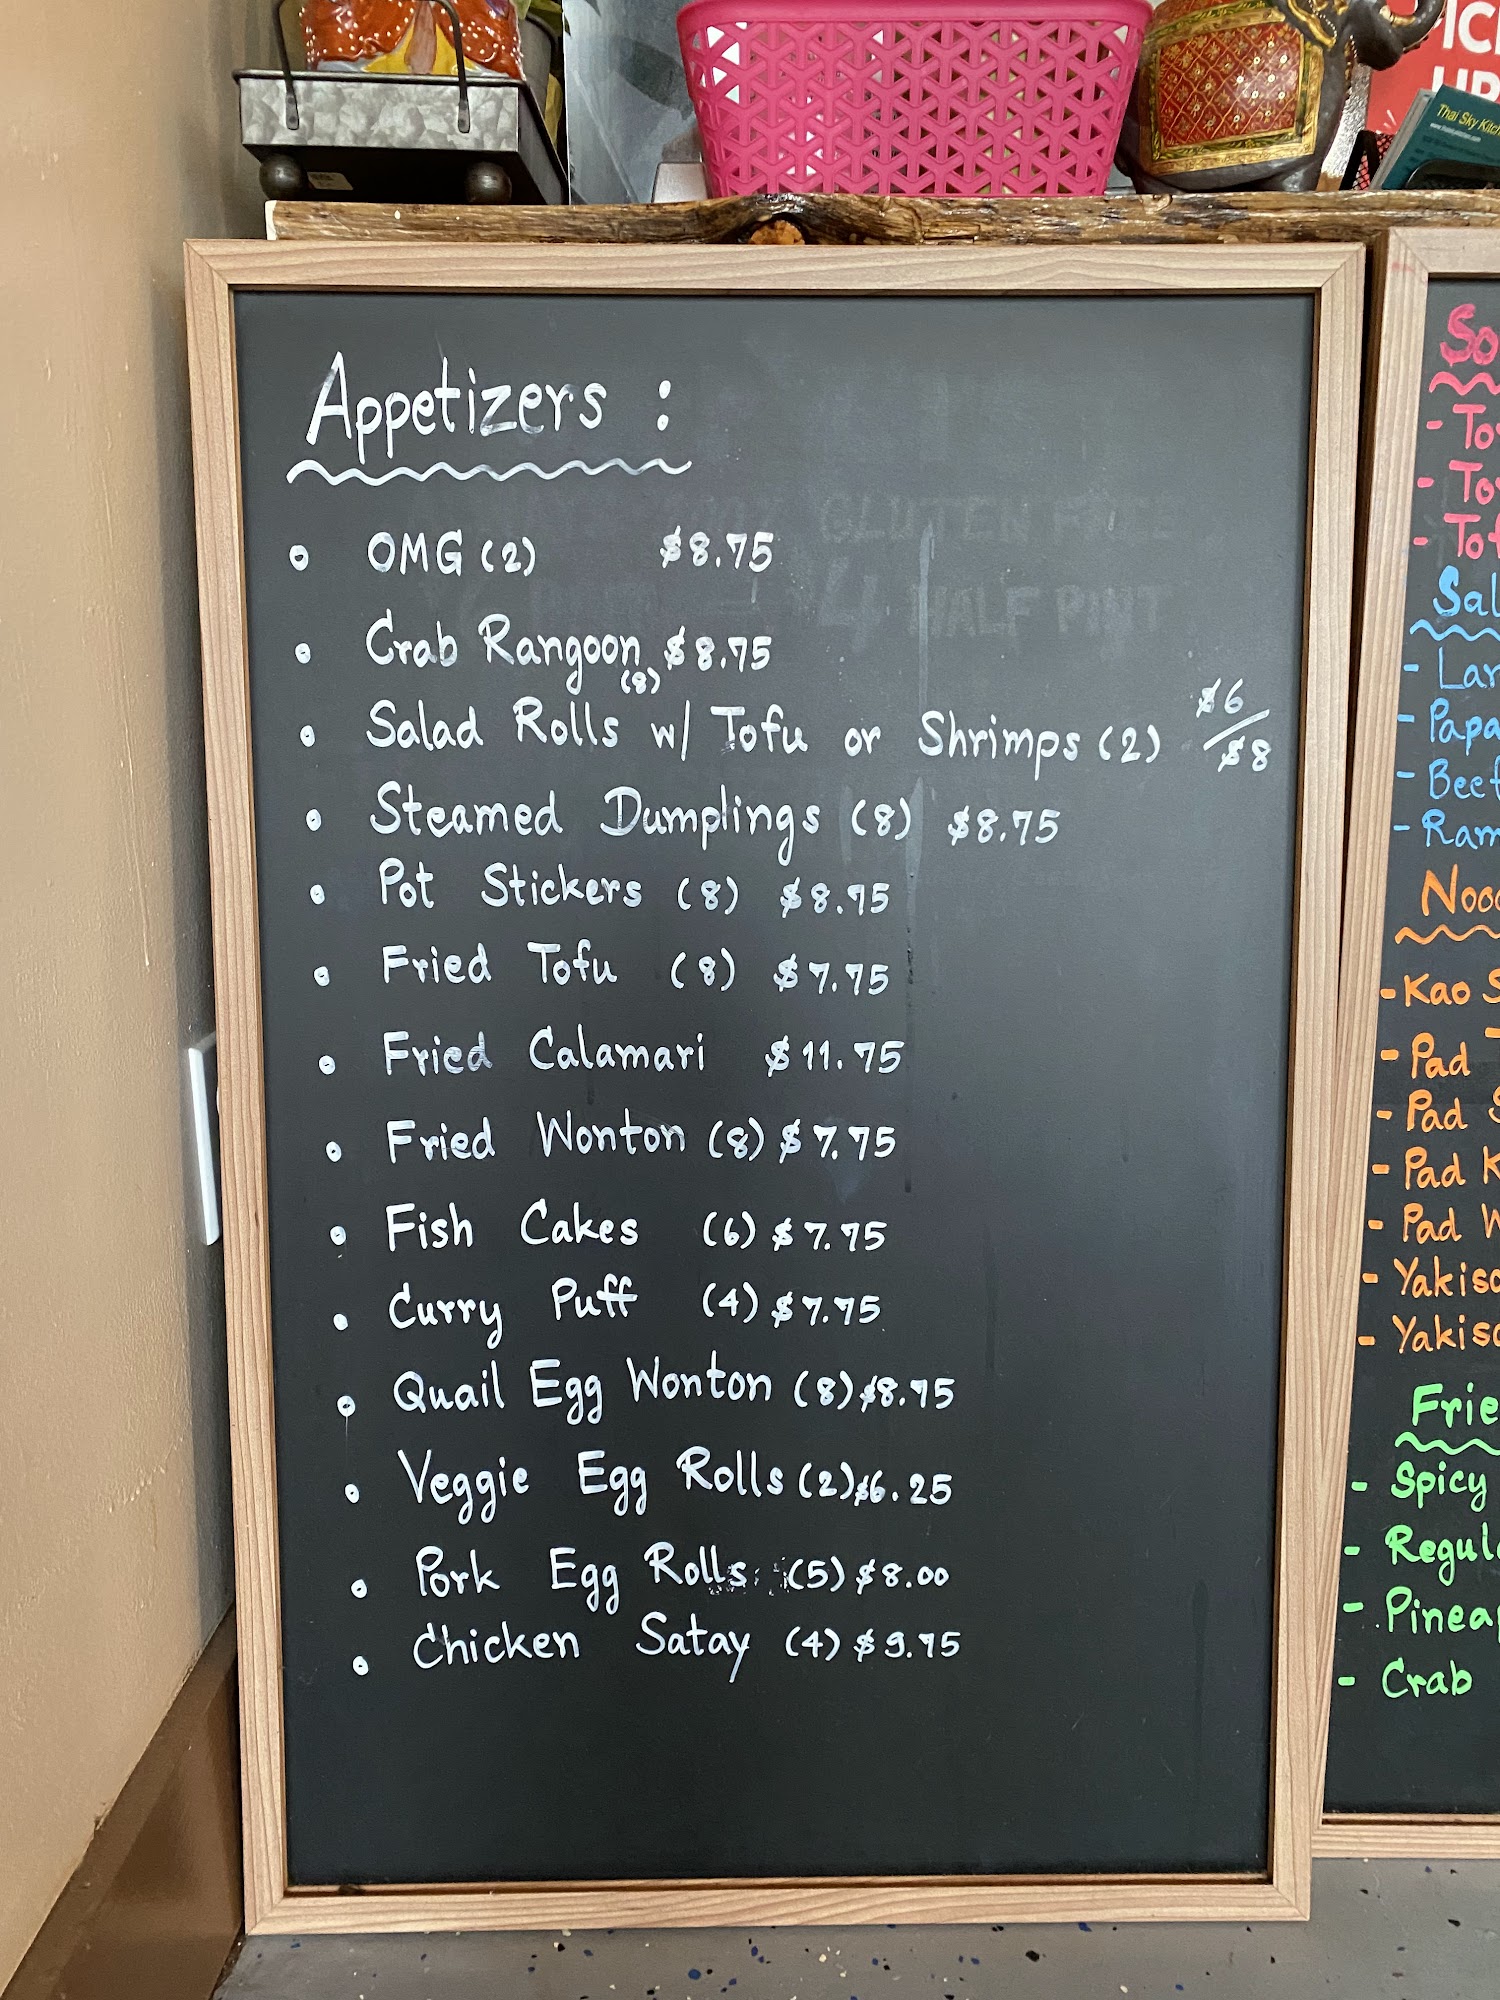 ICK
UP
Thai Sky Kitch
Appetizers :
GLUTEN FREE
HALF PINT
• OMG (2) $8.75
• Crab Rangoon (8) $8.75
• Salad Rolls w/ Tofu or Shrimps (2) $6/$8
• Steamed Dumplings (8) $8.75
• Pot Stickers (8) $8.75
• Fried Tofu (8) $7.75
• Fried Calamari $11.75
• Fried Wonton (8) $7.75
• Fish Cakes (6) $7.75
• Curry Puff (4) $7.75
• Quail Egg Wonton (8) $8.75
• Veggie Egg Rolls (2) $6.25
• Pork Egg Rolls (5) $8.00
• Chicken Satay (4) $9.75
So
- To
- To
- Tof
Sal
- Lar
- Papa
- Beef
- Ram
Nood
- Kao S
- Pad
- Pad S
- Pad K
- Pad W
- Yakiso
- Yakiso
Frie
- Spicy
- Regul
- Pineap
- Crab